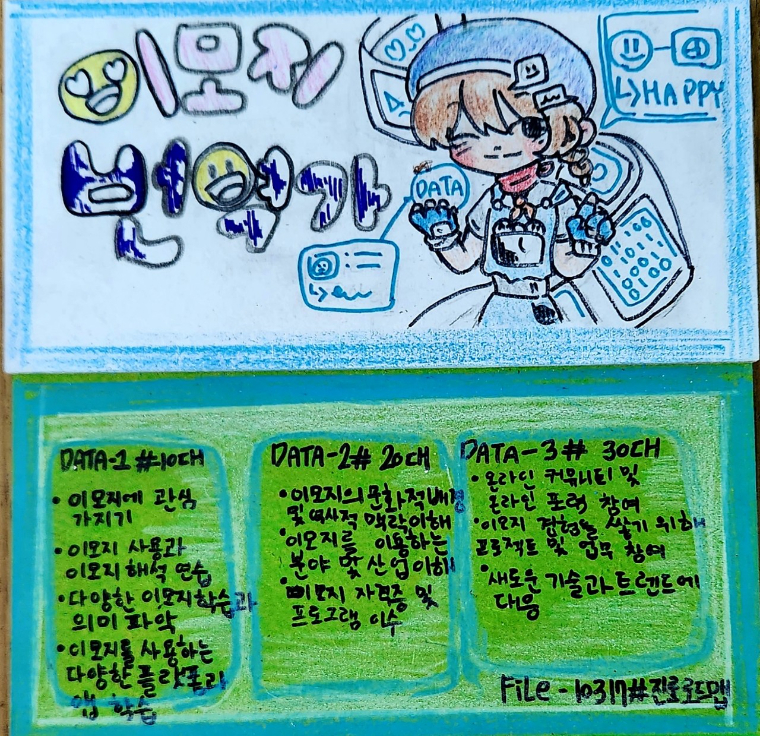 이모지
번역가
HAPPY
DATA
DATA-1 #10대
• 이모지에 관심
가지기
• 이모지 사용과
이모지 해석 연습
• 다양한 이모지학습과
의미 파악
• 이모지를 사용하는
다양한 플랫폼과
앱 학습
DATA-2# 20대
• 이모지의 문화적배경
및 역사적 맥락이해
• 이모지를 이용하는
분야 및 산업 이해
• 이모지 자격증 및
프로그램 이수
DATA-3# 30대
• 온라인 커뮤니티 및
온라인 포럼 참여
• 이모지 경험을 쌓기 위해
프로젝트 및 업무 참여
• 새로운 기술과 트렌드에
대응
File - 10317#진로로드맵